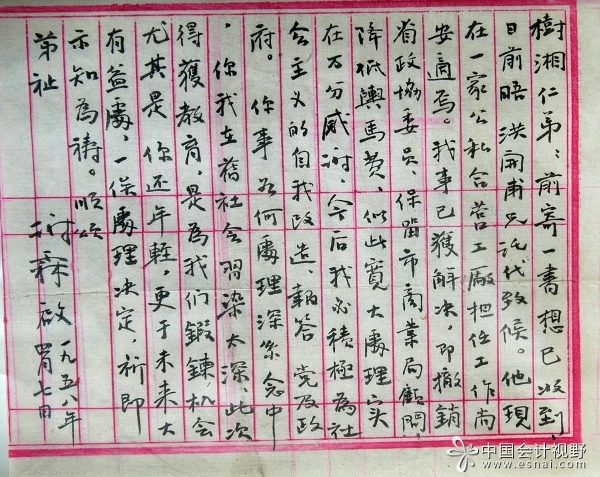 樹湘仁弟：前寄一書想已收到，
日前晤洪開甫兄託代致候。他現
在一家公私合营工廠担任工作尚
安適焉。我事已獲解决，即撤銷
省政協委员、保留市商業局顧問，
降低輿馬费，似此寬大處理实
在万分感谢，今后我必積極为社
会主义的自我改造、報答党及政
府。你事如何處理深系念中
，你我在舊社会習染太深，此次
得獲教育，是為我们鍛鍊机会
尤其是你还年輕，更于未来大
有益處，一俟處理决定，祈即
示知為禱。順頌
弟祉
树森啟 一九五八年
四月七日
中国会计视野
www.esnai.com